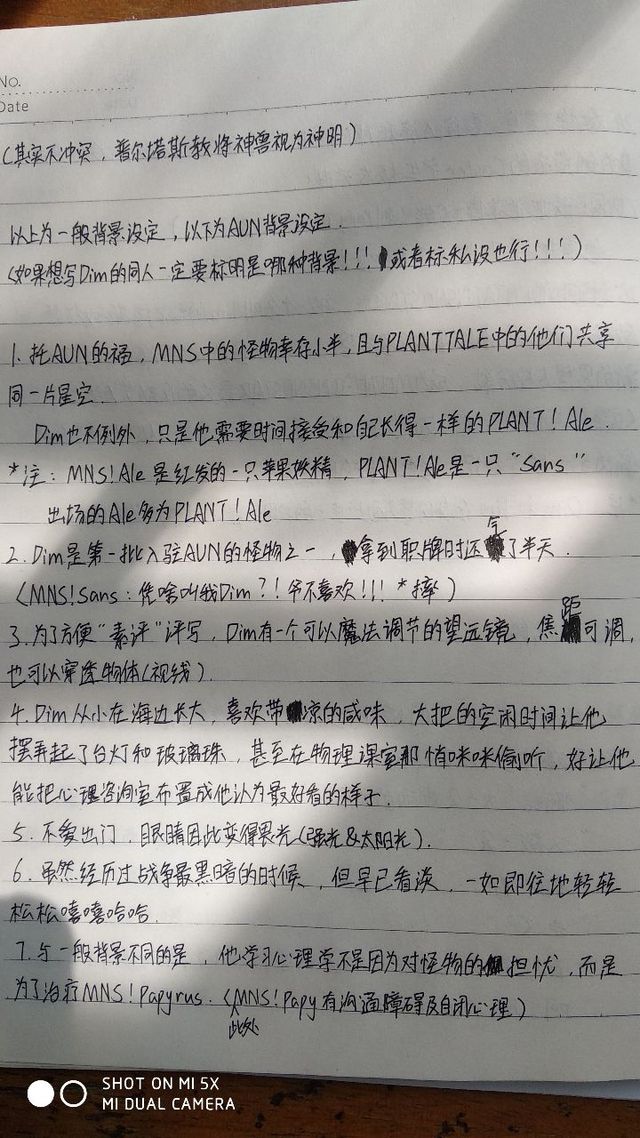 No.
Date
(其实不冲突，普尔塔斯教将神兽视为神明)
以上为一般背景设定，以下为AUN背景设定.
(如果想写Dim的同人一定要标明是哪种背景!!! 或者标私设也行!!!)
1. 托AUN的福，MNS中的怪物幸存小半，且与PLANTTALE中的他们共享
同一片星空.
Dim也不例外，只是他需要时间接受和自己长得一样的PLANT! Ale.
*注：MNS!Ale 是红发的一只苹果妖精，PLANT!Ale是一只“Sans”
出场的Ale多为PLANT!Ale
2. Dim是第一批入驻AUN的怪物之一，拿到职牌时还气了半天.
(MNS!Sans：凭啥叫我Dim?! 爷不喜欢!!! *摔)
3. 为了方便“素评”评写，Dim有一个可以魔法调节的望远镜，焦距可调，
也可以穿透物体(视线).
4. Dim从小在海边长大，喜欢带凉的咸味，大把的空闲时间让他
摆弄起了台灯和玻璃珠，甚至在物理课室那悄咪咪偷听，好让他
能把心理咨询室布置成他认为最好看的样子.
5. 不爱出门，眼睛因此变得畏光(强光&太阳光).
6. 虽然经历过战争最黑暗的时候，但早已看淡，一如即往地轻轻
松松嘻嘻哈哈.
7. 与一般背景不同的是，他学习心理学不是因为对怪物的担忧，而是
为了治疗MNS!Papyrus. (此处MNS!Papy有沟通障碍及自闭心理)
SHOT ON MI 5X
MI DUAL CAMERA